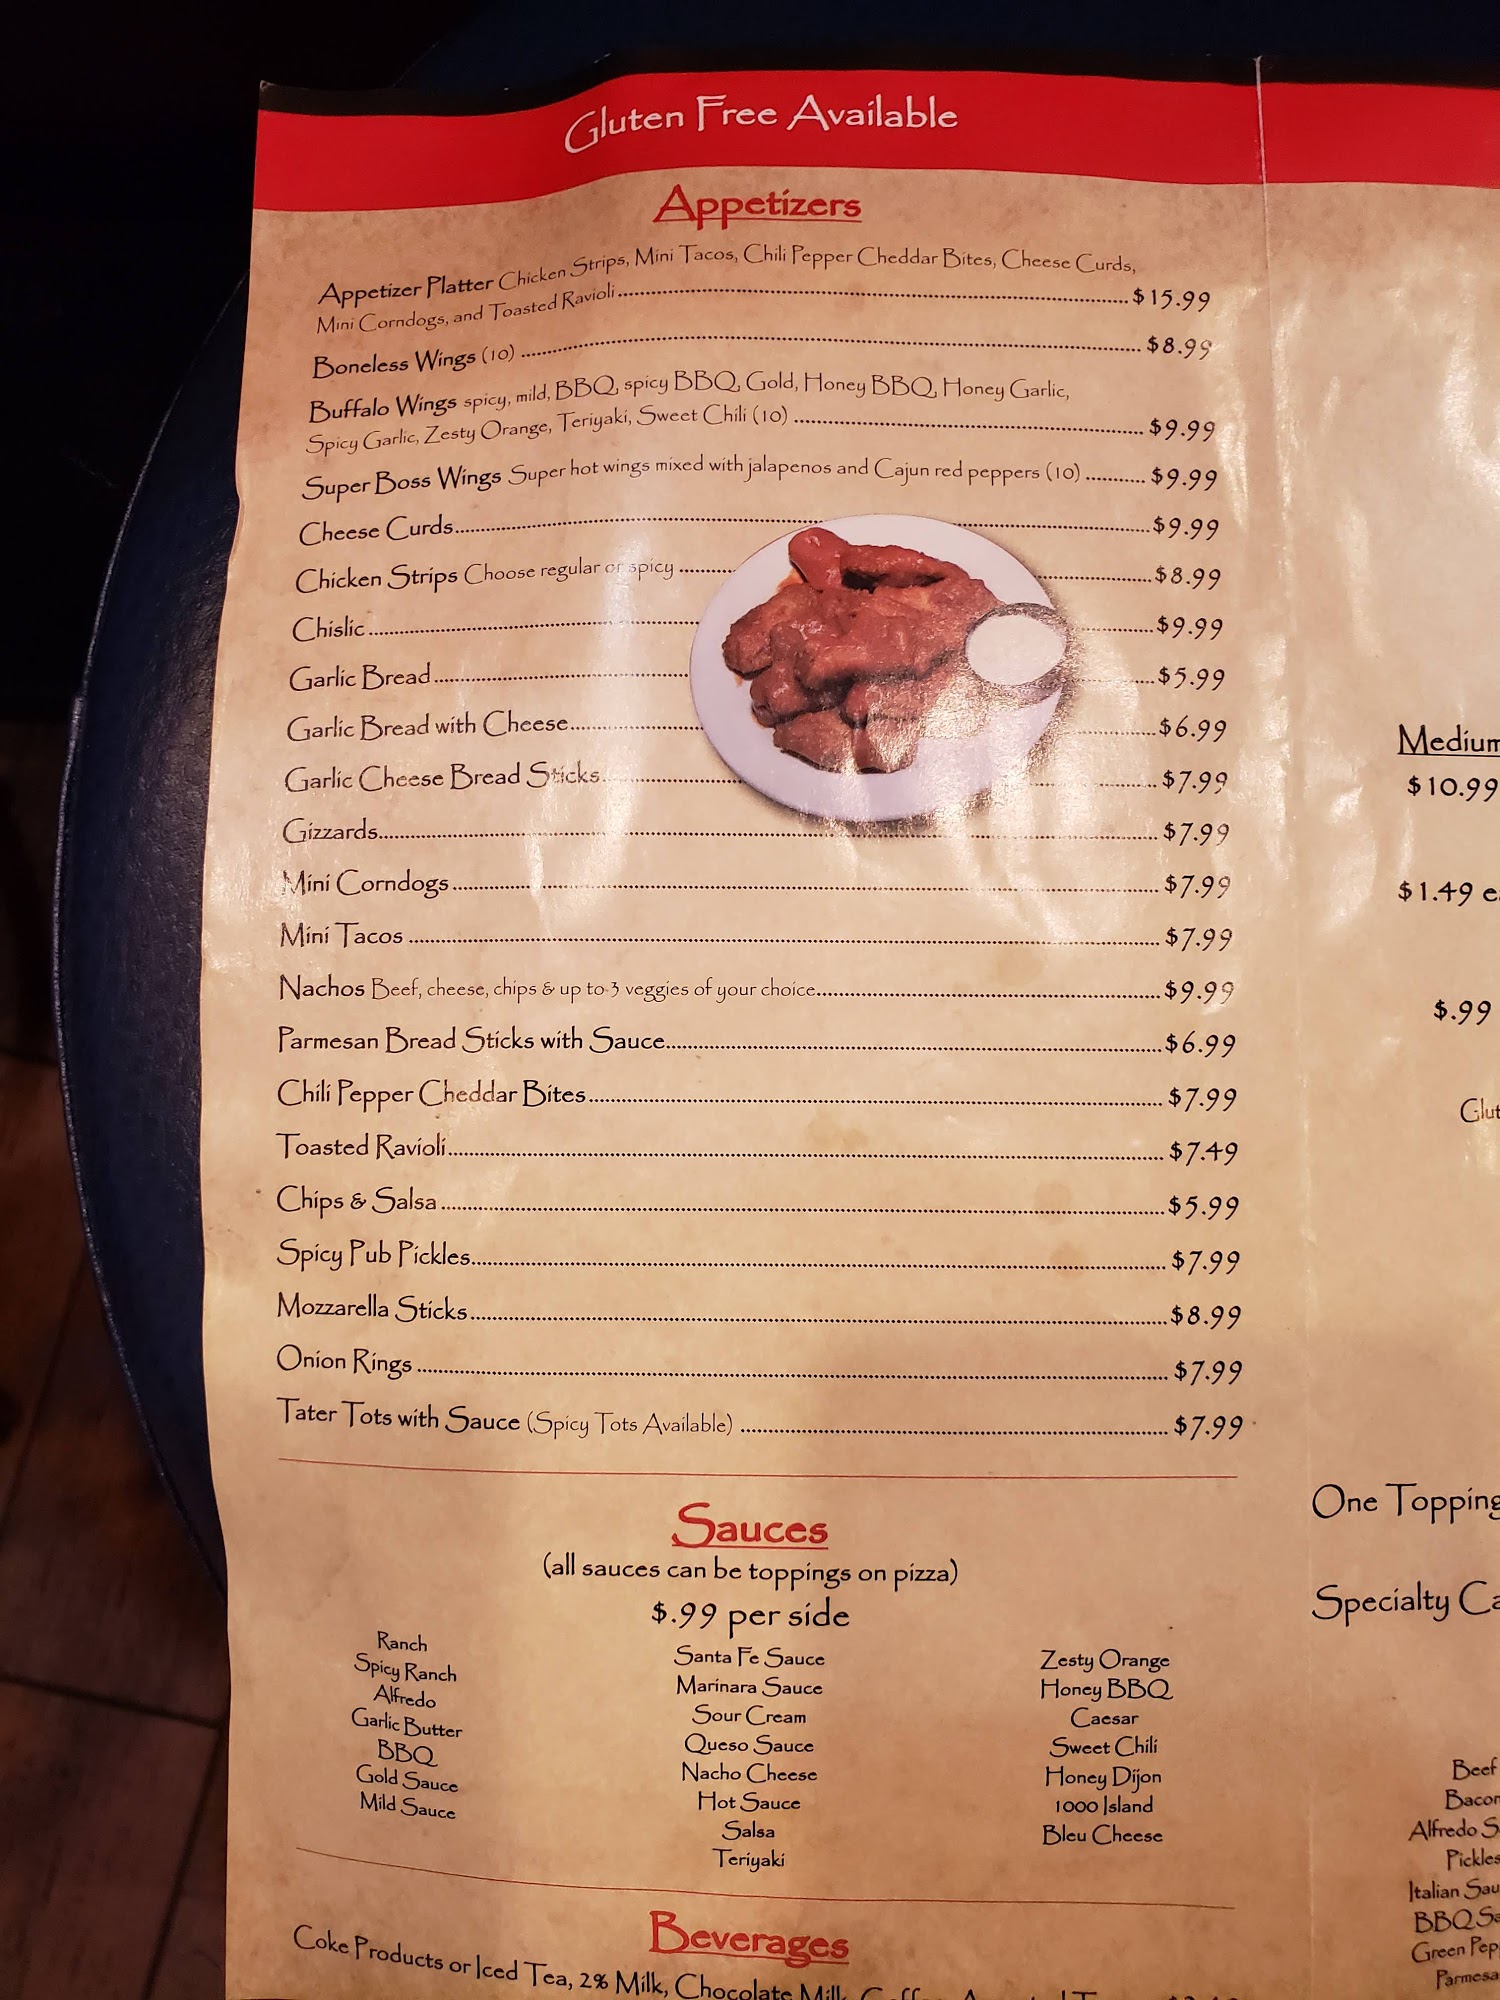 Gluten Free Available
Appetizers
Appetizer Platter Chicken Strips, Mini Tacos, Chili Pepper Cheddar Bites, Cheese Curds,
Mini Corndogs, and Toasted Ravioli $15.99
Boneless Wings (10) $8.99
Buffalo Wings spicy, mild, BBQ, spicy BBQ, Gold, Honey BBQ, Honey Garlic,
Spicy Garlic, Zesty Orange, Teriyaki, Sweet Chili (10) $9.99
Super Boss Wings Super hot wings mixed with jalapenos and Cajun red peppers (10) $9.99
Cheese Curds $9.99
Chicken Strips Choose regular or spicy $8.99
Chislic $9.99
Garlic Bread $5.99
Garlic Bread with Cheese $6.99
Garlic Cheese Bread Sticks $7.99
Gizzards $7.99
Mini Corndogs $7.99
Mini Tacos $7.99
Nachos Beef, cheese, chips & up to 3 veggies of your choice $9.99
Parmesan Bread Sticks with Sauce $6.99
Chili Pepper Cheddar Bites $7.99
Toasted Ravioli $7.49
Chips & Salsa $5.99
Spicy Pub Pickles $7.99
Mozzarella Sticks $8.99
Onion Rings $7.99
Tater Tots with Sauce (Spicy Tots Available) $7.99
Sauces
(all sauces can be toppings on pizza)
$.99 per side
Ranch
Spicy Ranch
Alfredo
Garlic Butter
BBQ
Gold Sauce
Mild Sauce
Santa Fe Sauce
Marinara Sauce
Sour Cream
Queso Sauce
Nacho Cheese
Hot Sauce
Salsa
Teriyaki
Zesty Orange
Honey BBQ
Caesar
Sweet Chili
Honey Dijon
1000 Island
Bleu Cheese
Beverages
Coke Products or Iced Tea, 2% Milk, Chocolate Milk,
Medium
$10.99
$1.49
$.99
One Topping
Specialty
Beef
Bacon
Alfredo
Pickles
Italian
BBQ
Green